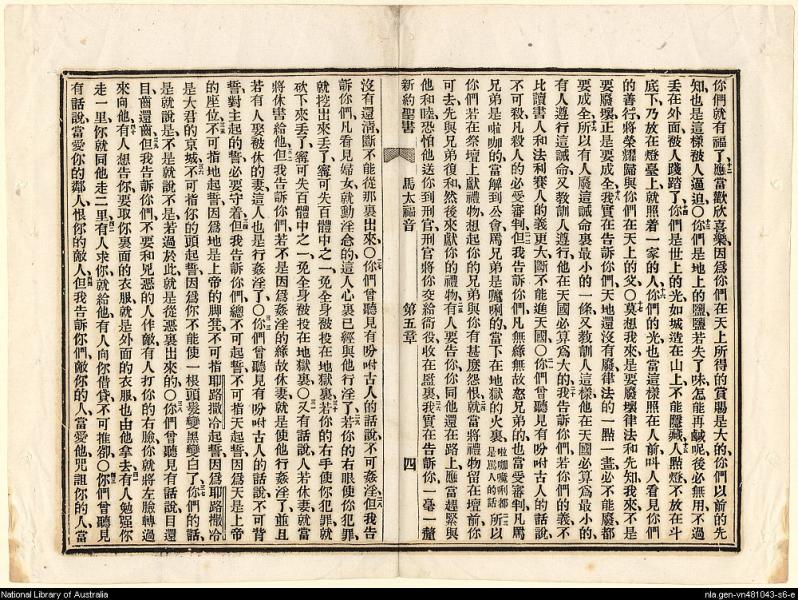 你們就有福了、應當歡欣喜樂、因爲你們在天上所得的賞賜是大的、你們以前的先
知也是這樣被人逼迫○你們是地上的鹽、鹽若失了味、怎能再鹹呢、後必無用、不過
丟在外面被人踐踏了、你們是世上的光、如城造在山上不能隱藏、人點燈不放在斗
底下、乃放在燈臺上、就照着一家的人、你們的光也當這樣照在人前、叫人看見你們
的善行、將榮耀歸與你們在天上的父○莫想我來是要廢壞律法和先知、我來不是
要廢壞、正是要成全、我實在告訴你們、天地還沒有廢、律法的一點一畫必不能廢、都
要成全、所以有人廢這誡命裏最小的一條、又教訓人這樣、他在天國必算爲最小的、
有人遵行這誡命、又教訓人遵行、他在天國必算爲大的、我告訴你們、若你們的義不
比讀書人和法利賽人的義更大、斷不能進天國○你們曾聽見有吩咐古人的話說、
不可殺人、殺人的必受審判、但我告訴你們、凡無緣無故怒兄弟的、也當受審判、凡罵
兄弟是啦咖的、當解到公會、罵兄弟是魔唎的、當下在地獄的火裏、啦咖魔唎都是罵人的話 所以
你們若在祭壇上獻禮物、想起你的兄弟與你有甚麽怨恨、就當將禮物留在壇前、你
可去先與兄弟復和、然後來獻你的禮物、有人要告你、你同他還在路上、應當趕緊與
他和睦、恐怕他送你到刑官、刑官將你交給衙役、收在監裏、我實在告訴你、一毫一釐
新約聖書 馬太福音 第五章 四
沒有還清、斷不能從那裏出來○你們曾聽見有吩咐古人的話說、不可姦淫、但我告
訴你們、凡看見婦女就動淫念的、這人心裏已經與他行淫了、若你的右眼使你犯罪、
就挖出來丟了、寧可失百體中之一、免全身被投在地獄裏、若你的右手使你犯罪、就
砍下來丟了、寧可失百體中之一、免全身被投在地獄裏○又有話說、人若休妻、就當
將休書給他、但我告訴你們、若不是因爲姦淫的緣故休妻、就是使他行姦淫了、並且
若有人娶被休的妻、這人也是行姦淫了○你們曾聽見有吩咐古人的話說、不可背
誓、對主起的誓必要守着、但我告訴你們、總不可起誓、不可指天起誓、因爲天是上帝
的座位、不可指地起誓、因爲地是上帝的脚凳、不可指耶路撒冷起誓、因爲耶路撒冷
是大君的京城、不可指你的頭起誓、因爲你不能使一根頭髮變黑變白了、你們的話、
是就說是、不是就說不是、若過於此、就是從惡裏出來的○你們曾聽見有話說、目還
目、齒還齒、但我告訴你們、不要和兇惡的人作敵、有人打你的右臉、你就將左臉轉過
來向他、有人想告你、要取你裏面的衣服、就是外面的衣服、也由他拿去、有人勉强你
走一里、你就同他走二里、有人求你就給他、有人向你借貸、不可推卻○你們曾聽見
有話說、當愛你的鄰人、恨你的敵人、但我告訴你們、敵你們的人當愛他、咒詛你的人、當
National Library of Australia
nla.gen-vn481043-s6-e